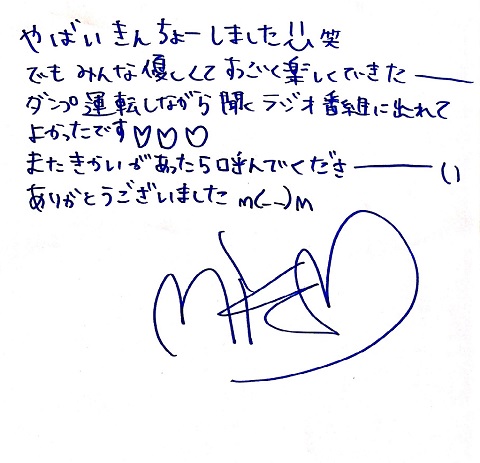 やばいきんちょーしました!!笑
でもみんな優しくてすごく楽しくできたー
ダンプ運転しながら聞くラジオ番組に出れて
よかったです♡♡♡
またきかいがあったら呼んでくださーい
ありがとうございましたm(_ _)m